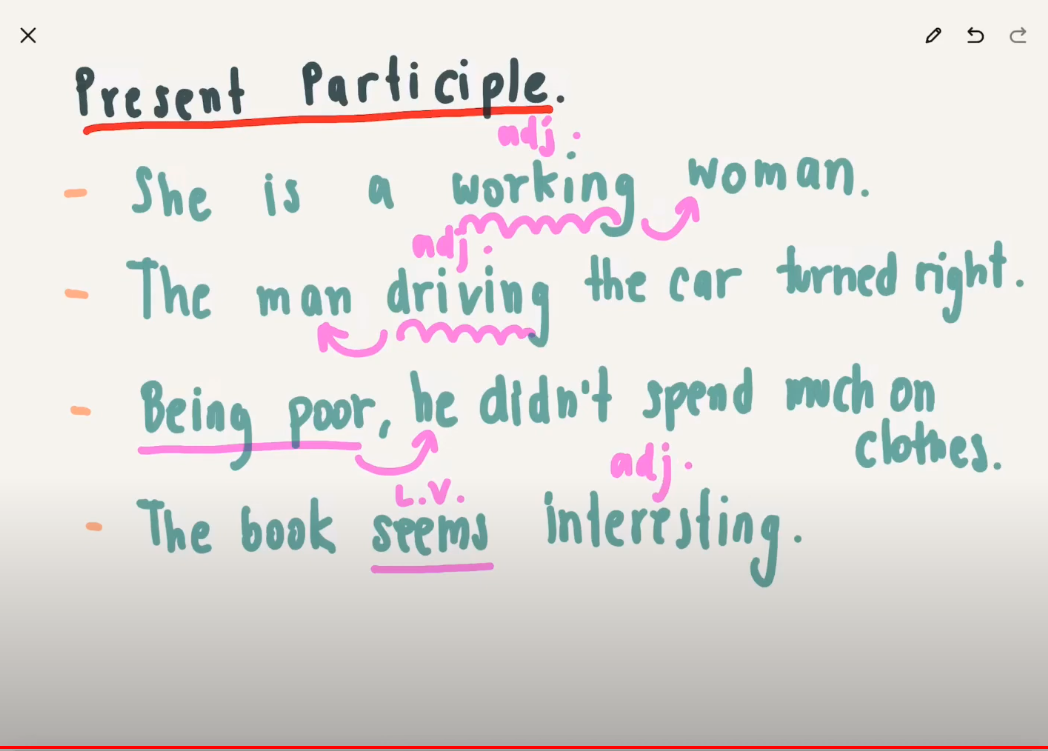 Present Participle.
adj.
- She is a working woman.
adj.
- The man driving the car turned right.
- Being poor, he didn't spend much on
clothes.
L.V. adj.
- The book seems interesting.